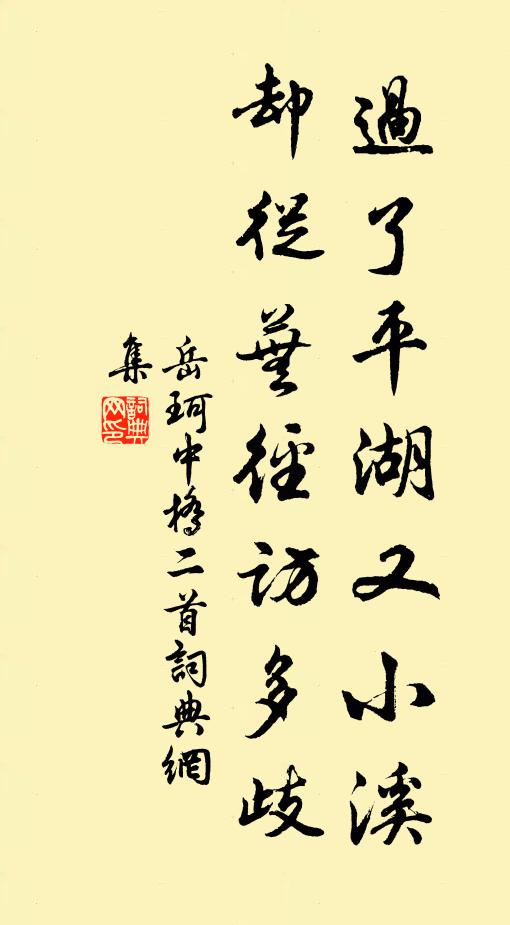 過了平湖又小溪
却從蕪徑訪多歧
岳珂中橋二首詞典網
集
詞典網印